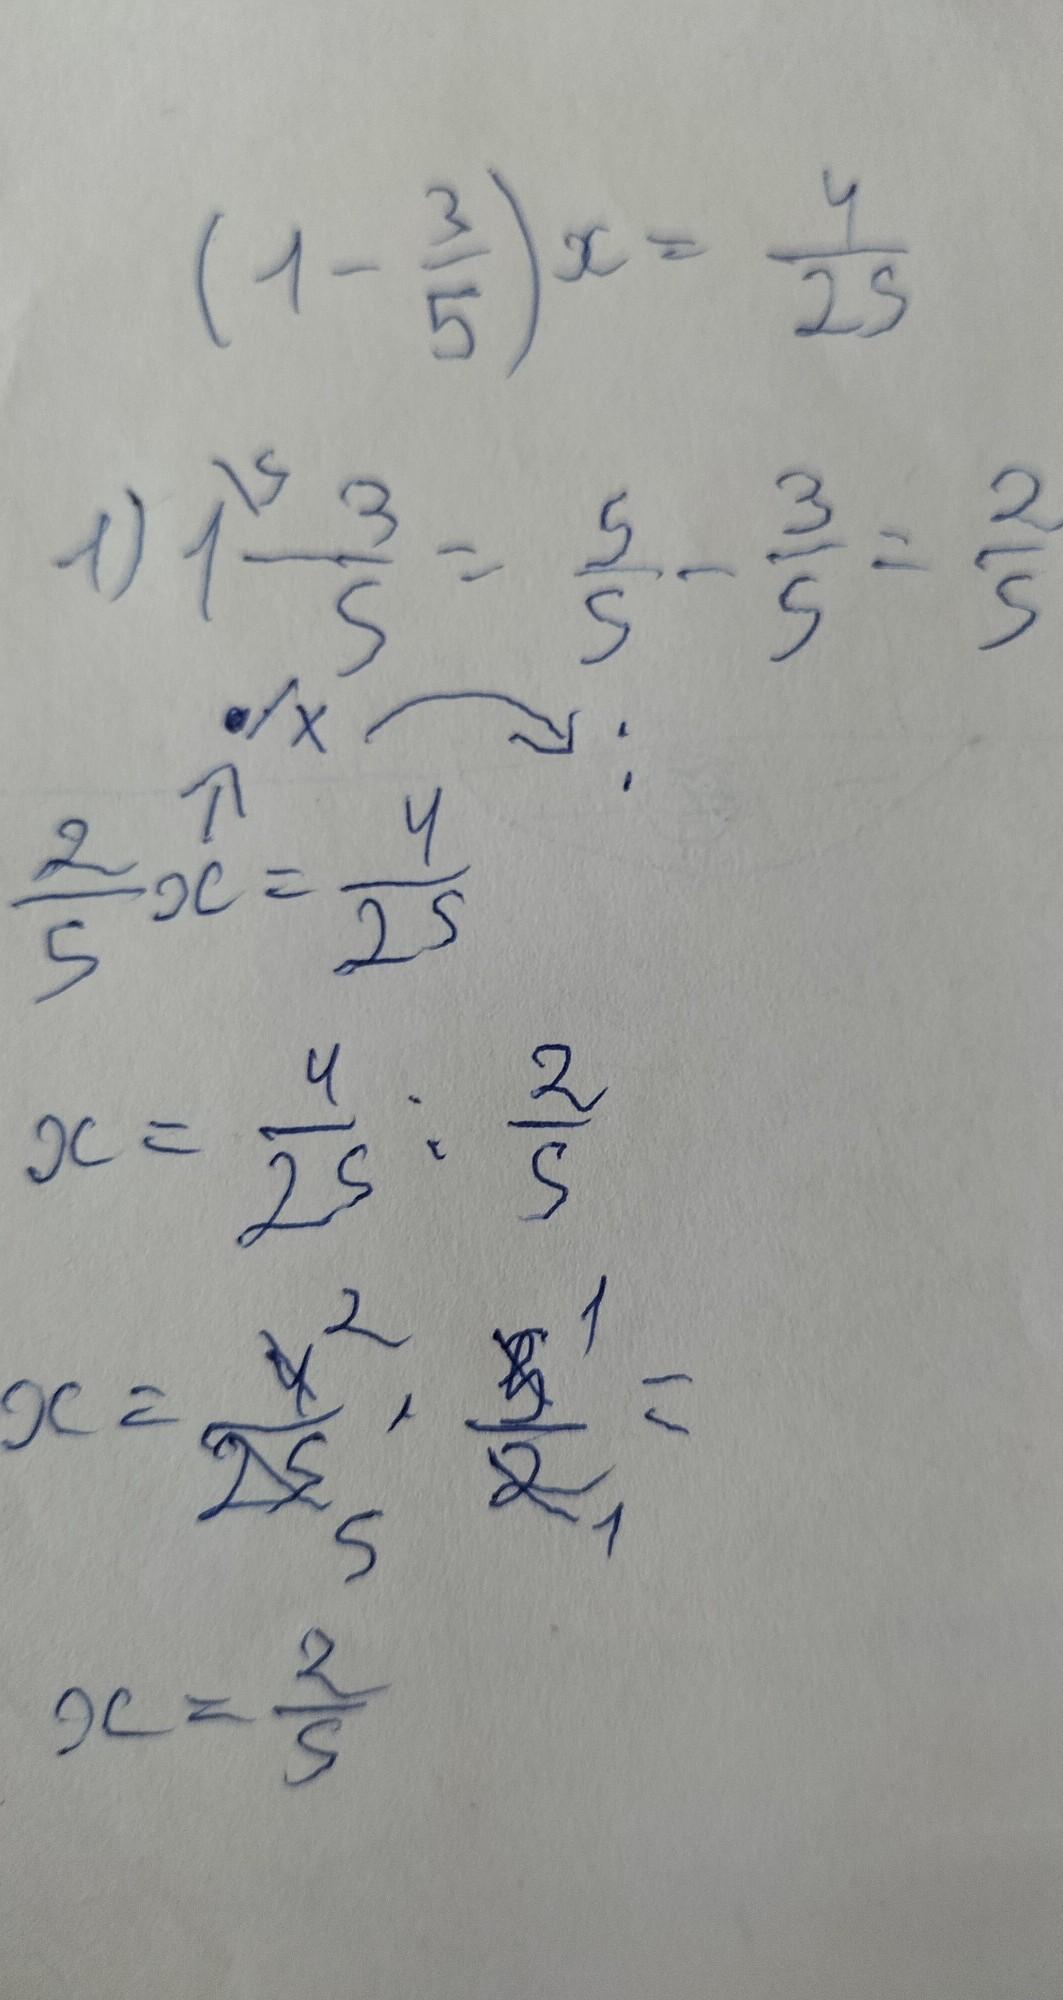 (1 - 3/5)x = 4/25
1) 1\5 - 3/5 = 5/5 - 3/5 = 2/5
•/x → :
↑
2/5 x = 4/25
x = 4/25 : 2/5
x = 4 2/25 5 · 5 1/2 1 =
x = 2/5